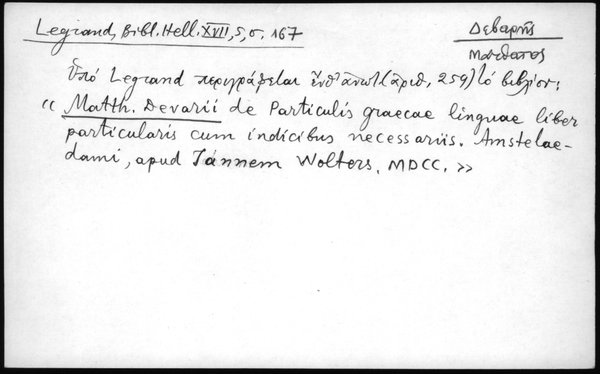 Legrand, Bibl. Hell. XVII, 5, σ. 167
Δεβαρῆς
Ματθαῖος
Ὑπό Legrand περιγράφεται ἔνθ' ἀνωτ. (ἀριθ. 259) τό βιβλίον:
« Matth. Devarii de Particulis graecae linguae liber
particularis cum indicibus necessariis. Amstelae-
dami, apud Jánnem Wolters, MDCC. »